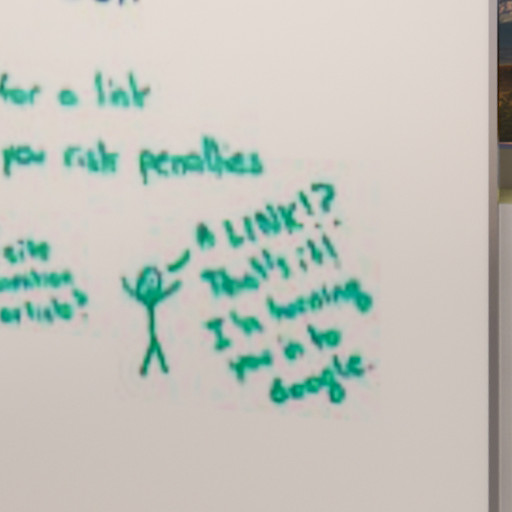 for a link
you risk penalties
site
mention
article?
A LINK!?
That's it!
I'm turning
you in to
Google.